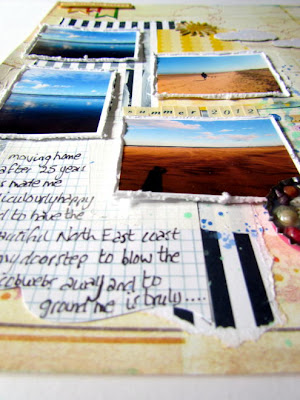 summer 2012
moving home
after 25 years
s made me
iculously happy
d to have the
autiful North East coast
my doorstep to blow the
cobwebs away and to
ground me is truly....